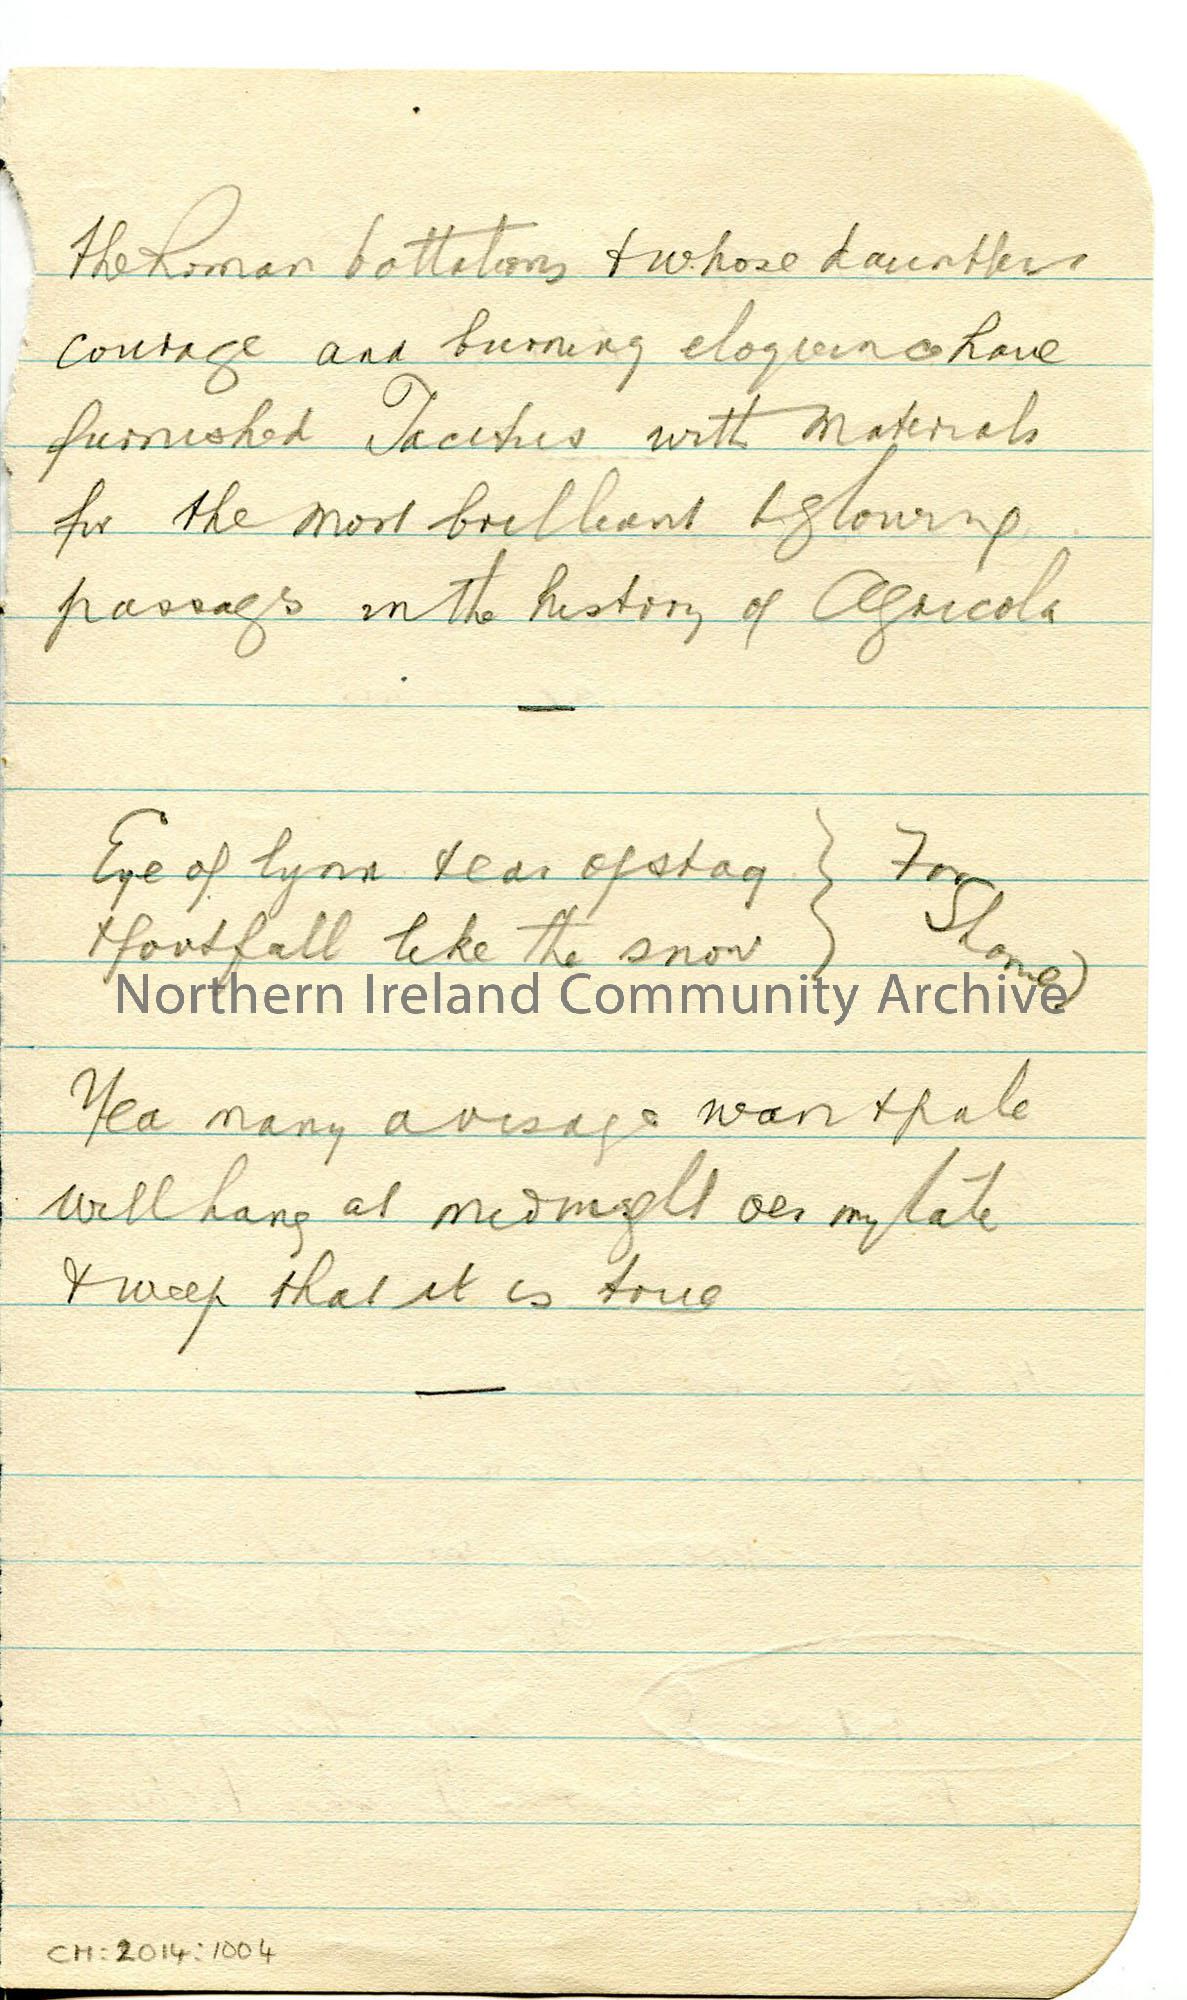 the Roman battalions & whose dauntless
courage and burning eloquence have
furnished Tacitus with materials
for the most brilliant & glowing
passages in the history of Agricola
—
Eye of lynx & ear of stag } For
& footfall like the snow } Shame)
Northern Ireland Community Archive
Yea many a visage wan & pale
will hang at midnight oer my tale
& weep that it is true
—
CM:2014:1004